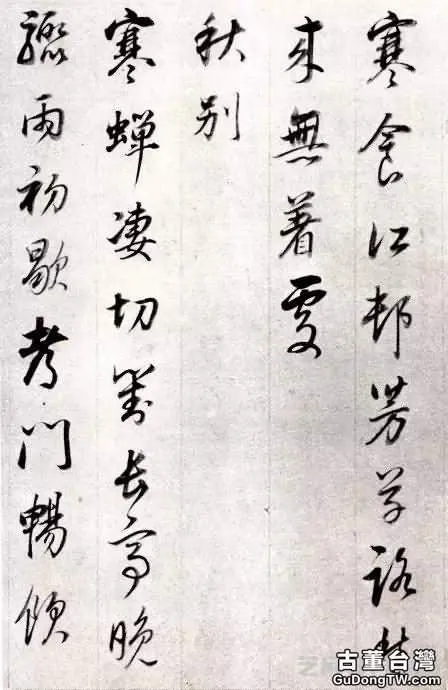 寒食江邨芳草路愁
來無著處
秋别
寒蟬淒切對長亭晚
驟雨初歇都門暢飲
古董台灣
GuDongTW.com